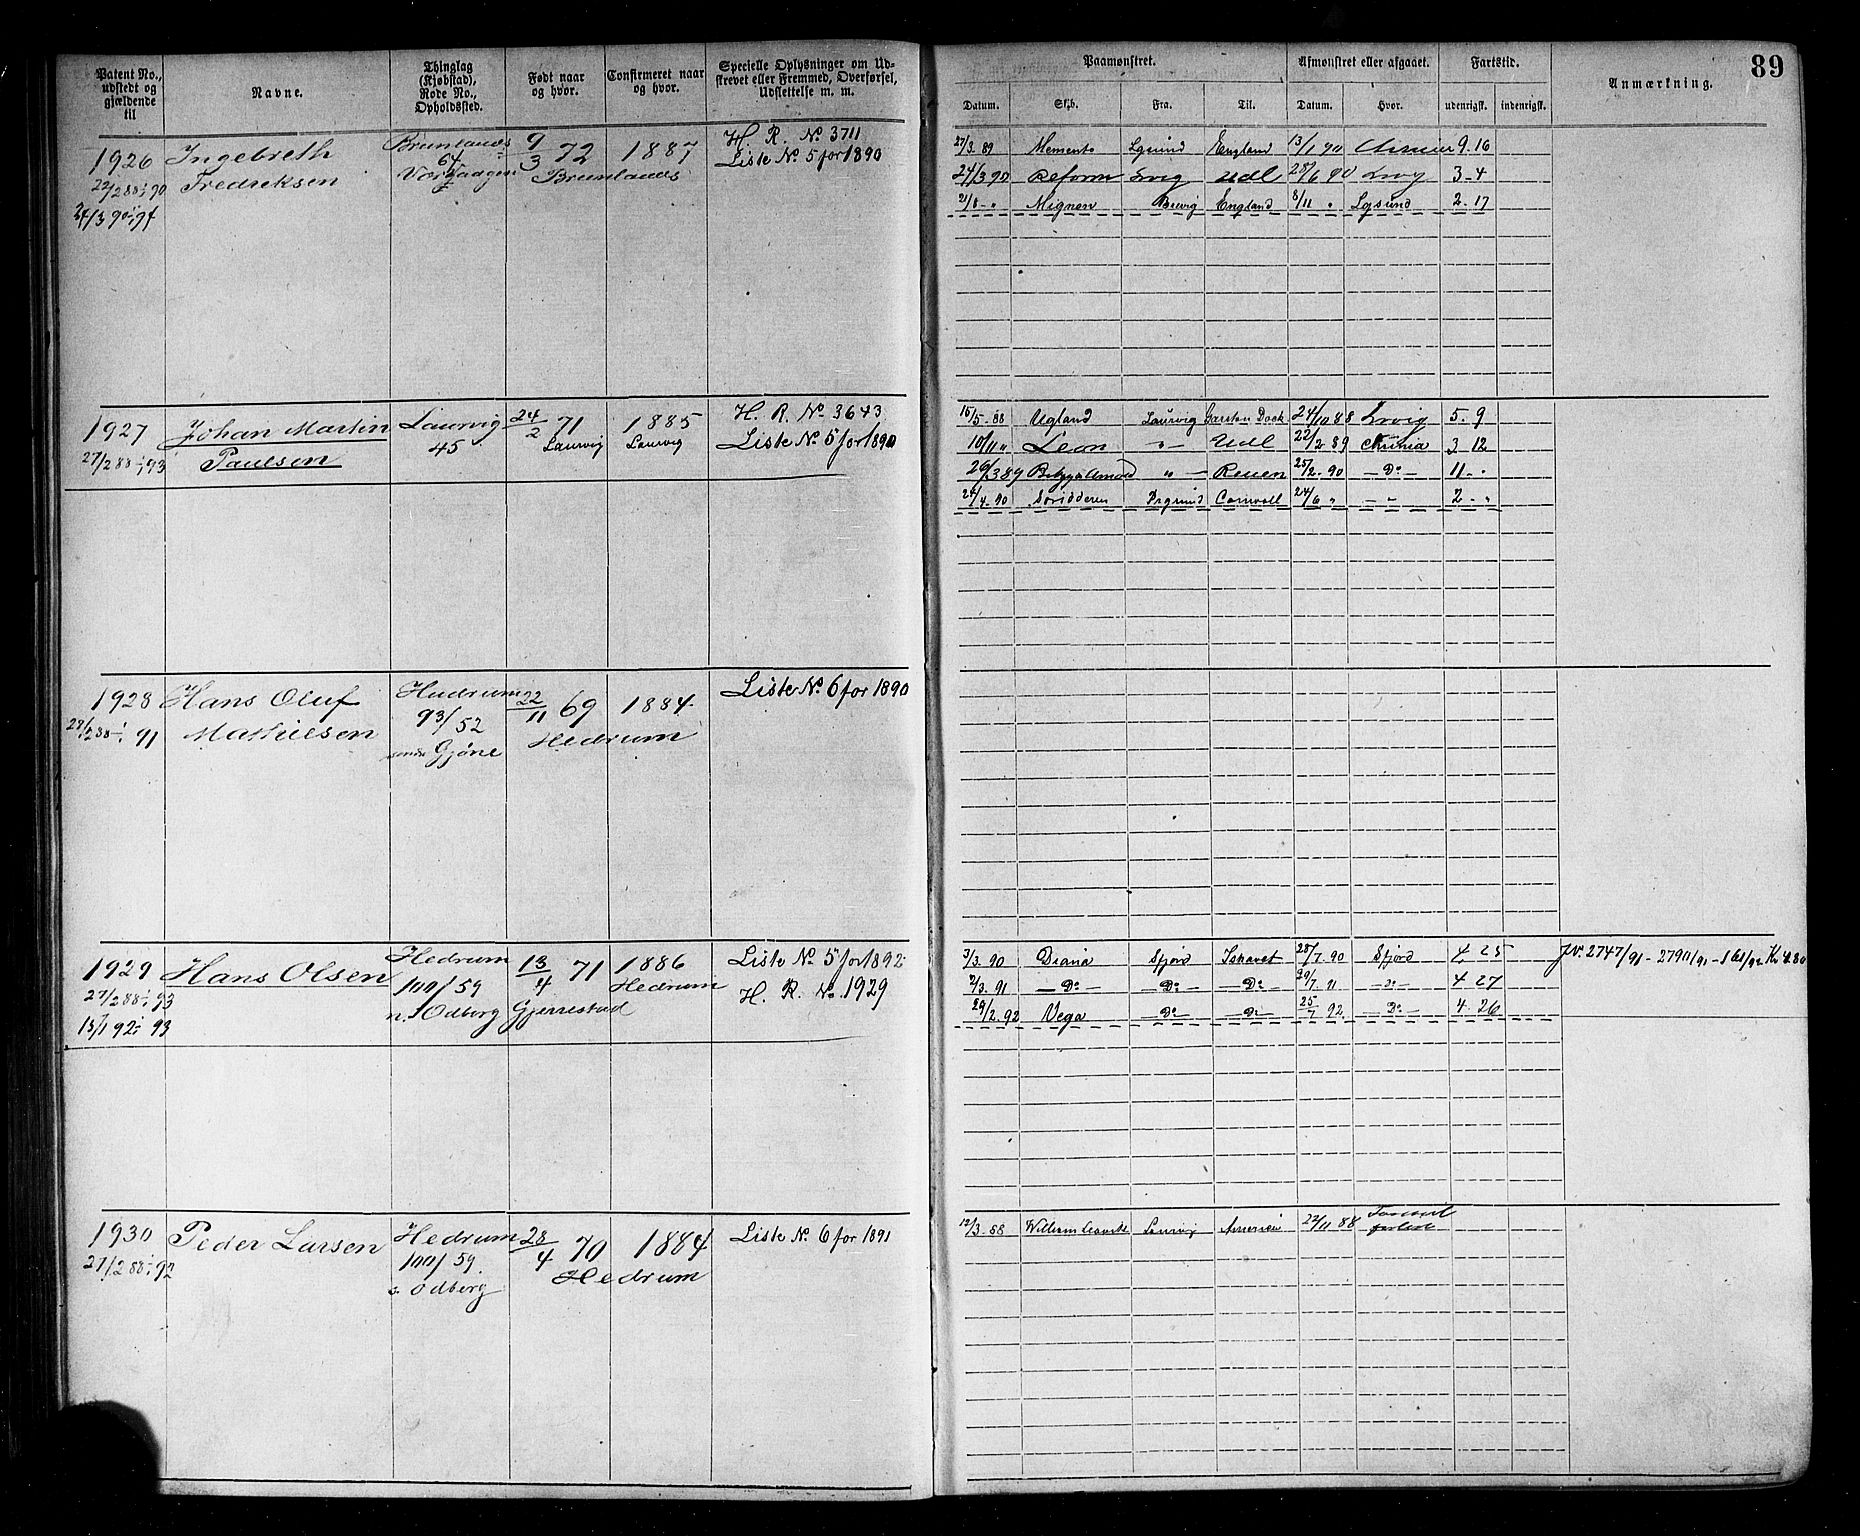 Patent No., udstedt og gjældende til
Navne.
Thinglag (Kjøbstad), Rode No., Opholdssted.
Født naar og hvor.
Confirmeret naar og hvor.
Specielle Oplysninger om Udskrevet eller Fremmed, Overførsel, Udslettelse m. m.
Paamønstret.
Afmønstret eller afgaaet.
Fartstid.
Anmærkning.
89
Datum. Skib. Fra. Til. Datum. Hvor. udenrigsk. indenrigsk.
1926 Ingebreth Fredreksen
22/2 88 - 1/1 90
24/3 90 - 1/1 94
Brunlanæs
64
9/3 72
Brunlanæs
1887
H. R. No 3711
Liste No 5 for 1890
27/3 89 Memento England 13/1 90 9.16
24/3 90 Reform Lvig Udl 28/6 90 Lvig 3-4
21/8 - " Mignon Brevig England 8/11 " 2-17
1927 Johan Martin Paulsen
27/2 88 - 1/1 93
Laurvig
45
24/2 71
Laurvig
1885
Laurvig
H. R. No 3643
Liste No 5 for 1890
15/5-88 Ugland Laurvig Garston Dock 24/10 88 Lvig 5-9
10/11 " Leon " - Udl 22/2 89 Chrinia 3-12
26/3 89 " - Rouen 25/2-90 - Do - 11 - "
90 Cornwall 24/6 " - " 2 - "
1928 Hans Oluf Mathiesen
28/2 88 - 1/1 91
Hedrum
93/52
Gjøne
22/11 69
Hedrum
1884
Liste No 6 for 1890
1929 Hans Olsen
27/2 88 - 1/1 93
13/1 92 - 1/1 93
Hedrum
100/59
n. Odberg
13/4 71
Gjerrestad
1886
Hedrum
Liste No 5 for 1892
H. R. No 1929
3/3. 90 Diana Sfjord Ishavet 28/7 90 Sfjord 4 25
2/3. 91 - Do - - Do - - Do - 29/7 91 - Do - 4 27
29/2. 92 Vega - Do - - Do - 25/7 92 - Do - 4. 26
JN. 2747/91 - 2790/91 - 161/92 Kr. 4.80
1930 Peder Larsen
27/2 88 - 1/1 92
Hedrum
100/59.
Odberg
28/4 70
Hedrum
1884
Liste No 6 for 1891
12/3. 88 William Laurvig 22/11 88 forlist